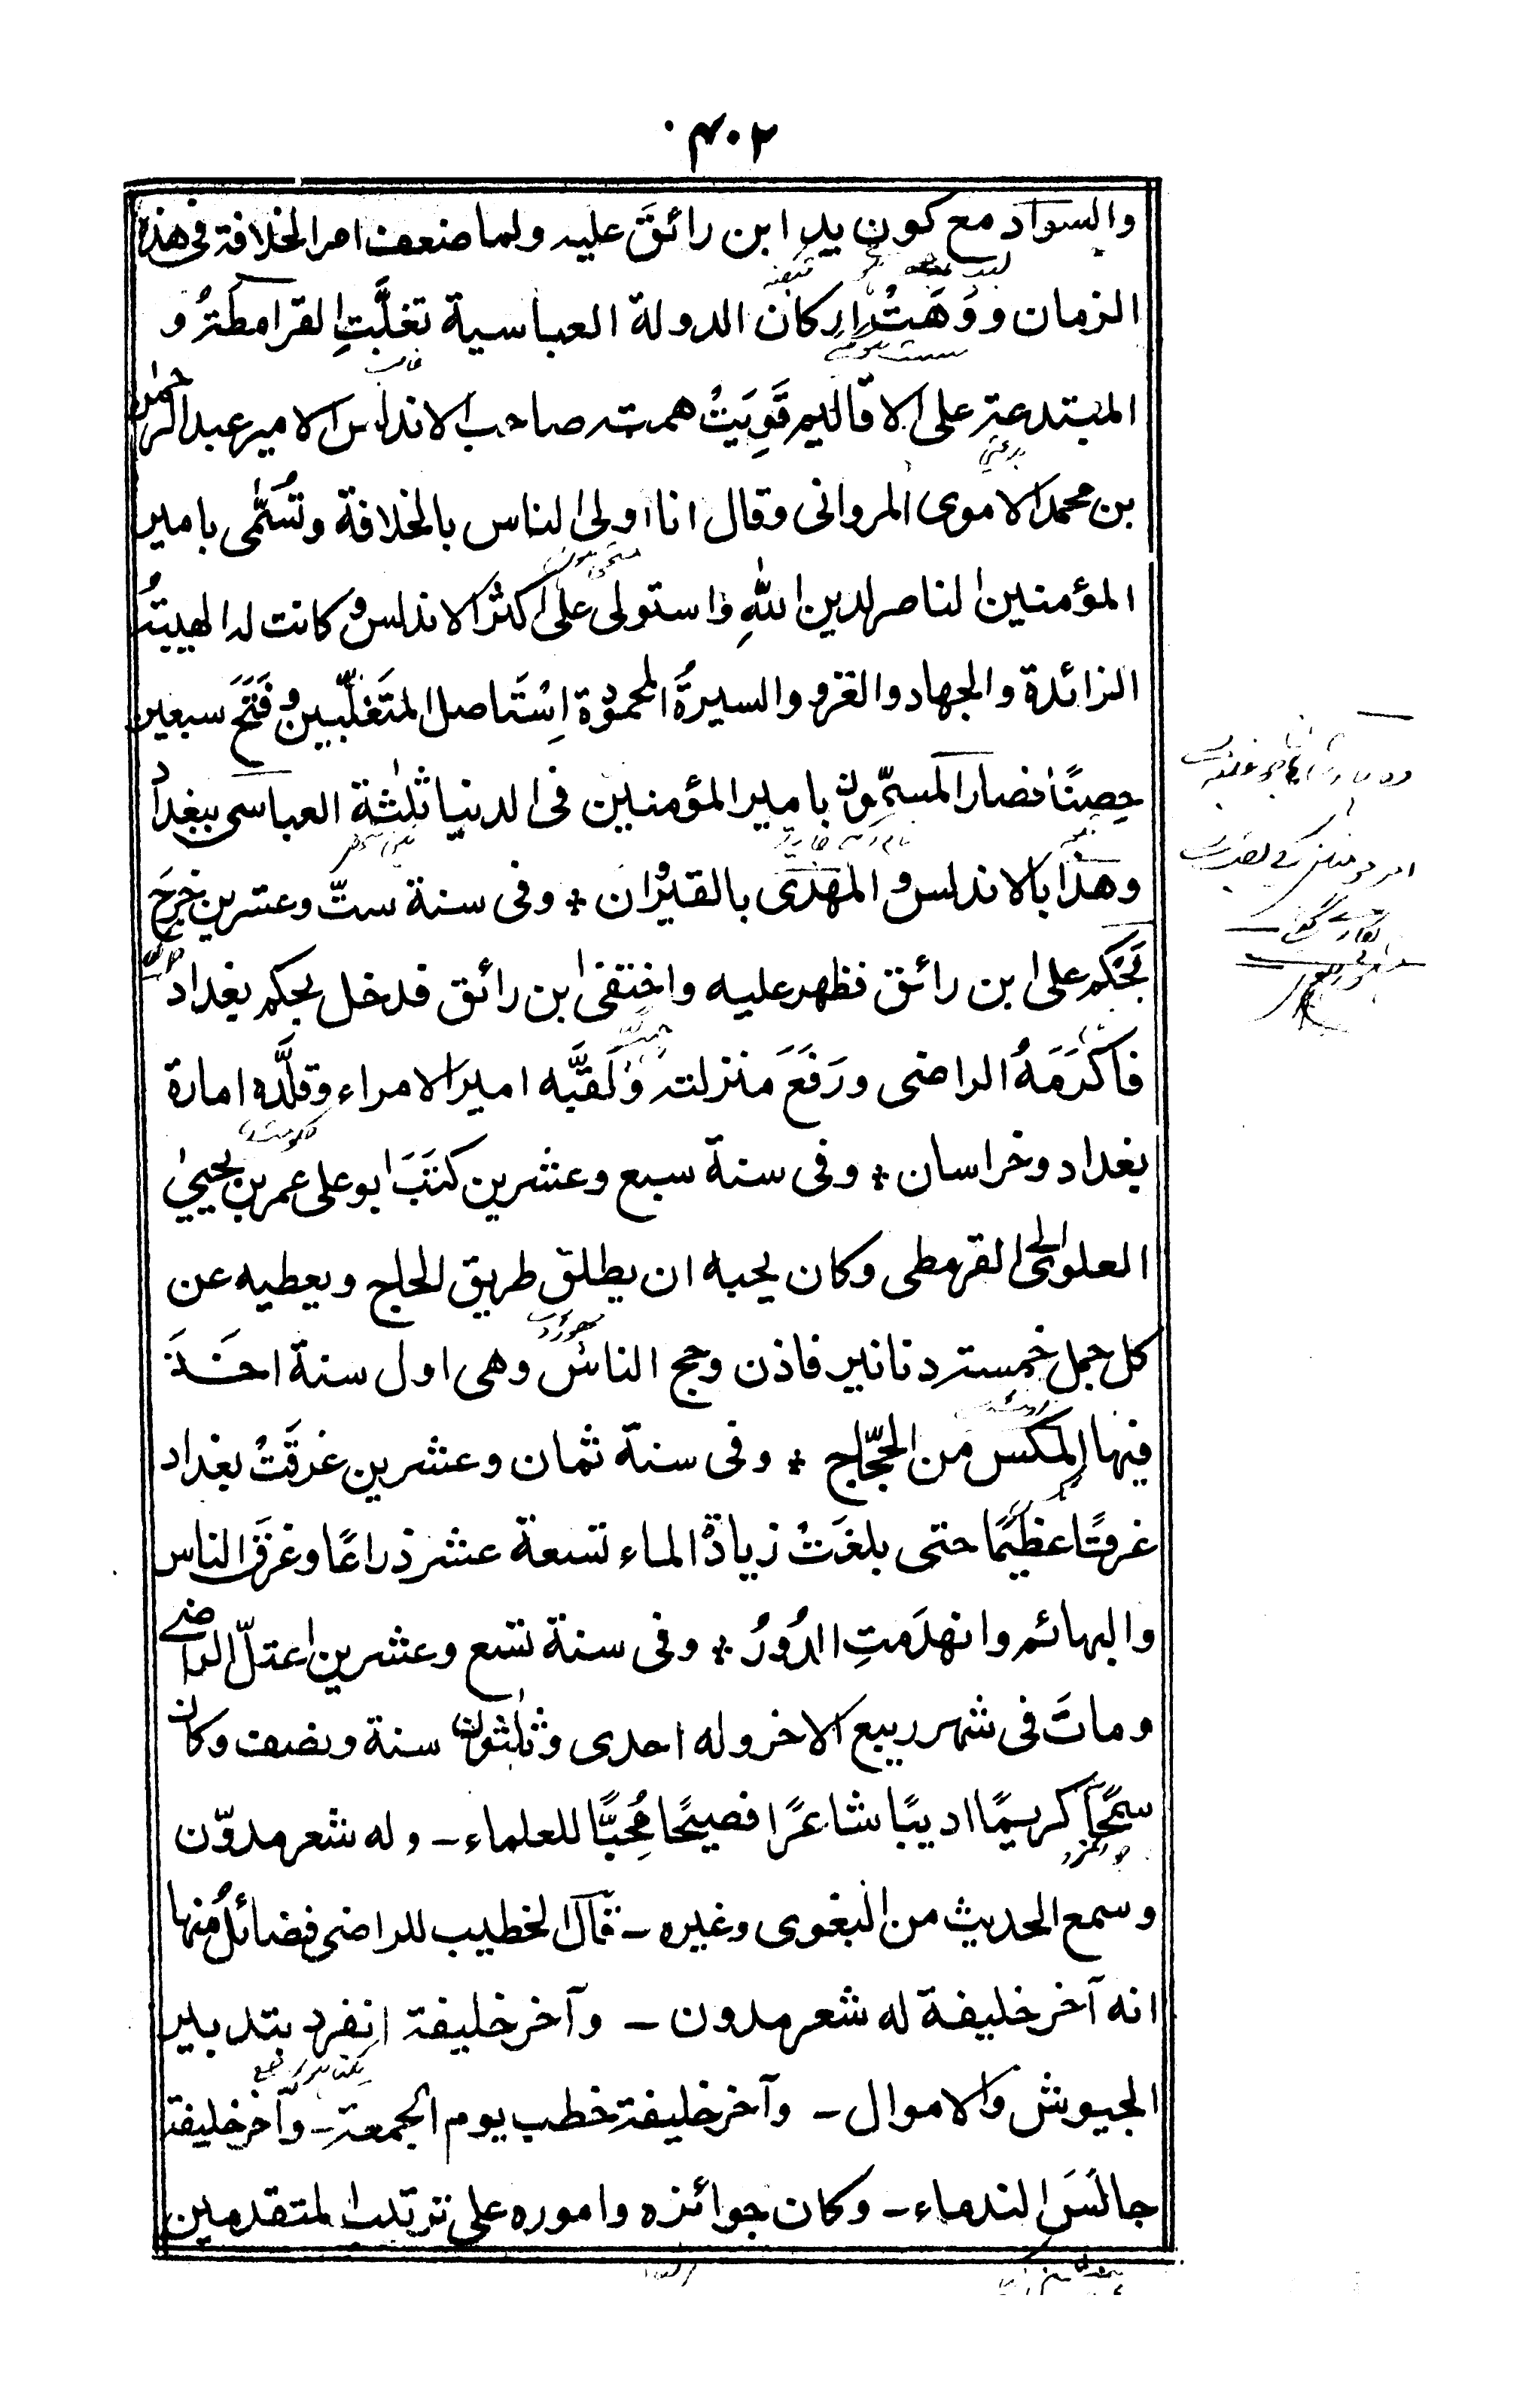 ۴۰۲
والسواد مع كون يد ابن رائق عليه ولما ضعف امر الخلافة فى هذه
الزمان ووَهَتْ اركان الدولة العباسية تغلَّبتِ القرامطةُ و
المبتدعة على الاقاليم قَوِيَتْ همة صاحب الاندلس الامير عبد الرحمٰن
بن محمد الاموى المروانى وقال انا اولى الناس بالخلافة وتسَمّٰى بامير
المؤمنين الناصر لدين اللهِ واستولى على اكثر الاندلس وكانت له الهيبةُ
الزائدة والجهاد والغزو والسيرةُ المحمودة اِسْتَاصل المتَغلّبين وفَتَحَ سبعين
حِصنًا فصار المسمّون بامير المؤمنين فى الدنيا ثلٰثة العباسى ببغداد
وهذا بالاندلس والمهدى بالقيروان * وفى سنة ستّ وعشرين خرجَ
بَجْكم على ابن رائق فظهر عليه واختفىٰ ابن رائق فدخل بجكم بغدادَ
فاكرَمَهُ الراضى ورَفَعَ منزلته ولَقَّبَه امير الامراء وقلَّده امارة
بغداد وخراسان * وفى سنة سبع وعشرين كتَبَ ابو على عمر بن يحيىٰ
العلوى الى القرمطى وكان يحبه ان يطلق طريق الحاج ويعطيه عن
كل جمل خمسة دنانير فاذن وحج الناس وهى اول سنة اخَذَ
فيها المكس من الحجّاج * وفى سنة ثمان وعشرين غرقَتْ بغداد
غرقًا عظيمًا حتى بلغَتْ زيادة الماء تسعة عشر ذراعًا وغرَقَ الناس
والبهائم وانهدَمتِ الدُورُ * وفى سنة تسع وعشرين اعتلّ الراضى
وماتَ فى شهر ربيع الاخر وله احدى وثلٰثون سنة ونصف وكان
سمْحًا كريمًا اديبًا شاعرًا فصيحًا مُحِبًّا للعلماء ـ وله شعر مدوّن
وسمع الحديث من البغوى وغيره ـ قال الخطيب للراضى فضائلُ منها
انه آخر خليفة له شعر مدون ـ وآخر خليفة انفرد بتدبير
الجيوش والاموال ـ وآخر خليفة خطب يوم الجمعة ـ وآخر خليفة
جالَسَ الندماء ـ وكان جوائزه واموره على ترتيب المتقدمين